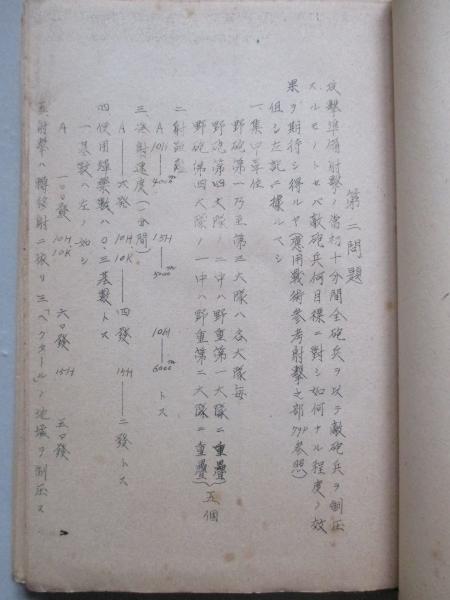 第二問題
攻撃準備射撃ノ當初十分間全砲兵ヲ以テ敵砲兵ヲ制圧
スルモノトセバ敵砲兵何目標ニ對シ如何ナル程度ノ效
果ヲ期待シ得ルヤ(應用戰術参考射撃之部 参照)
但シ左記ニ據ルベシ
一集中單位
野砲第一乃至第三大隊ハ各大隊毎
野砲第四大隊ノ二中ハ野重第一大隊ニ重疊
野砲第四大隊ノ一中ハ野重第二大隊ニ重疊 五個
二射距離
A 10H 4000m 15H 5000m 10H 6000m トス
三発射速度(一分間)
A 六発 10H 10K 四發 15H 二發トス
四使用彈藥数ハ〇.三基数トス
一基数ハ左ノ如シ
A 一〇〇發 10H 10K 六〇發 15H 五〇發
五射撃ハ轉移射ニ依リ三「ヘクタール」ノ地域ヲ制圧ス